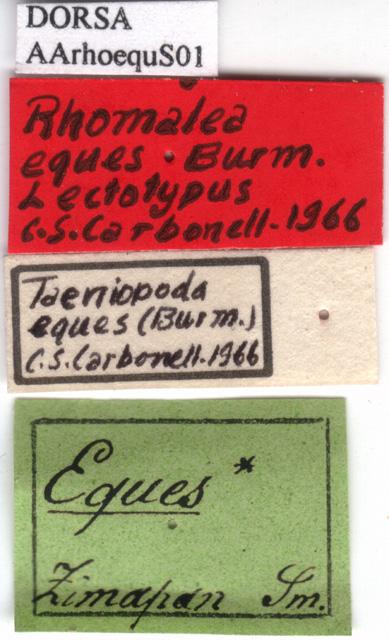 DORSA
AArhoequS01
Rhomalea
eques Burm.
Lectotypus
C.S.Carbonell-1966
Taeniopoda
eques (Burm.)
C.S.Carbonell-1966
Eques *
Zimapan Sm.